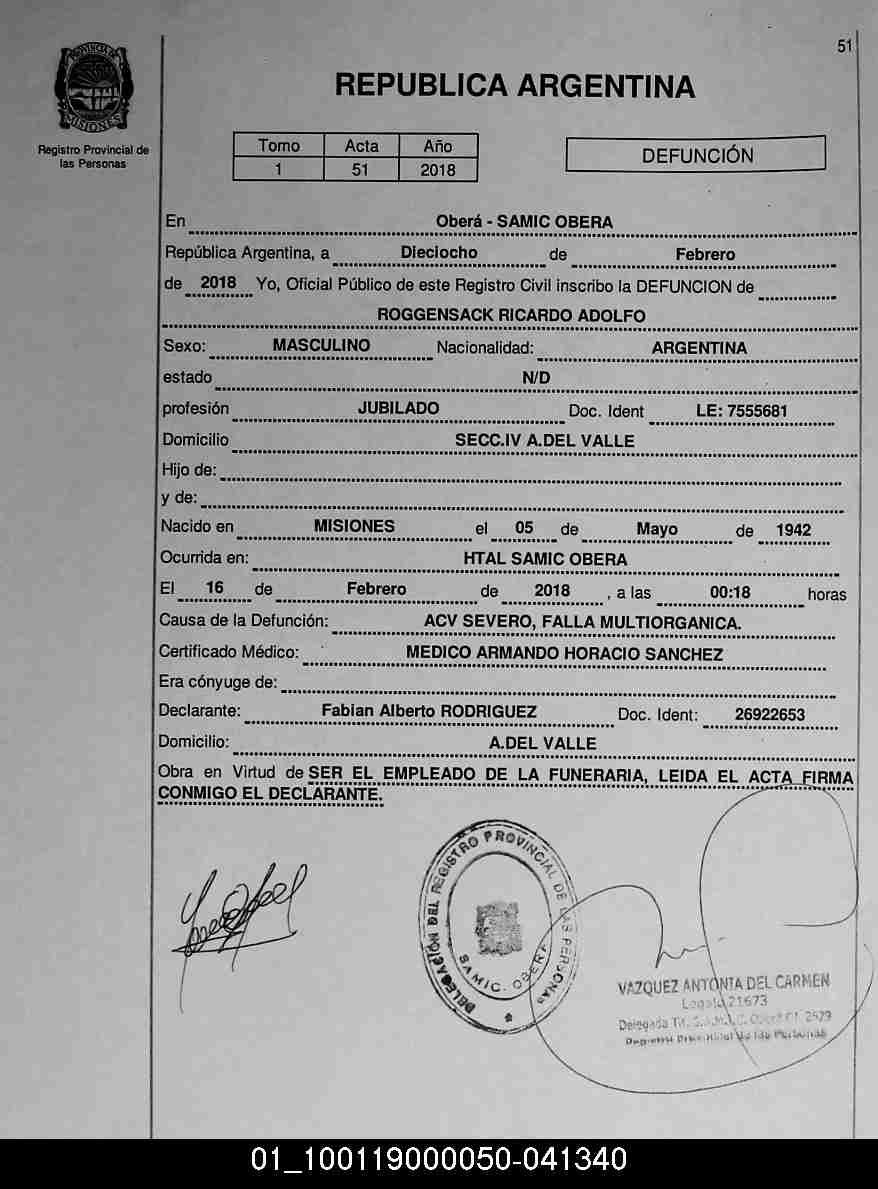 51
PROVINCIA DE
MISIONES
Registro Provincial de
las Personas
REPUBLICA ARGENTINA
Tomo Acta Año
1 51 2018
DEFUNCIÓN
En Oberá - SAMIC OBERA
República Argentina, a Dieciocho de Febrero
de 2018 Yo, Oficial Público de este Registro Civil inscribo la DEFUNCION de
ROGGENSACK RICARDO ADOLFO
Sexo: MASCULINO Nacionalidad: ARGENTINA
estado N/D
profesión JUBILADO Doc. Ident LE: 7555681
Domicilio SECC.IV A.DEL VALLE
Hijo de:
y de:
Nacido en MISIONES el 05 de Mayo de 1942
Ocurrida en: HTAL SAMIC OBERA
El 16 de Febrero de 2018 , a las 00:18 horas
Causa de la Defunción: ACV SEVERO, FALLA MULTIORGANICA.
Certificado Médico: MEDICO ARMANDO HORACIO SANCHEZ
Era cónyuge de:
Declarante: Fabian Alberto RODRIGUEZ Doc. Ident: 26922653
Domicilio: A.DEL VALLE
Obra en Virtud de SER EL EMPLEADO DE LA FUNERARIA, LEIDA EL ACTA FIRMA
CONMIGO EL DECLARANTE.
DELEGACIÓN DEL REGISTRO PROVINCIAL DE LAS PERSONAS
SAMIC. OBERA
VAZQUEZ ANTONIA DEL CARMEN
Legajo 21673
Delegada 2529
Registro Provincial de las Personas
01_100119000050-041340